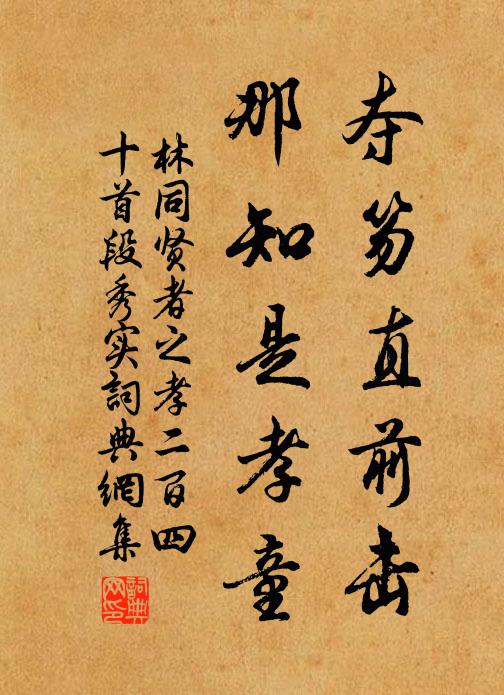 夺笏直前击
那知是孝童
林同贤者之孝二百四
十首段秀实词典網集
詞典网印